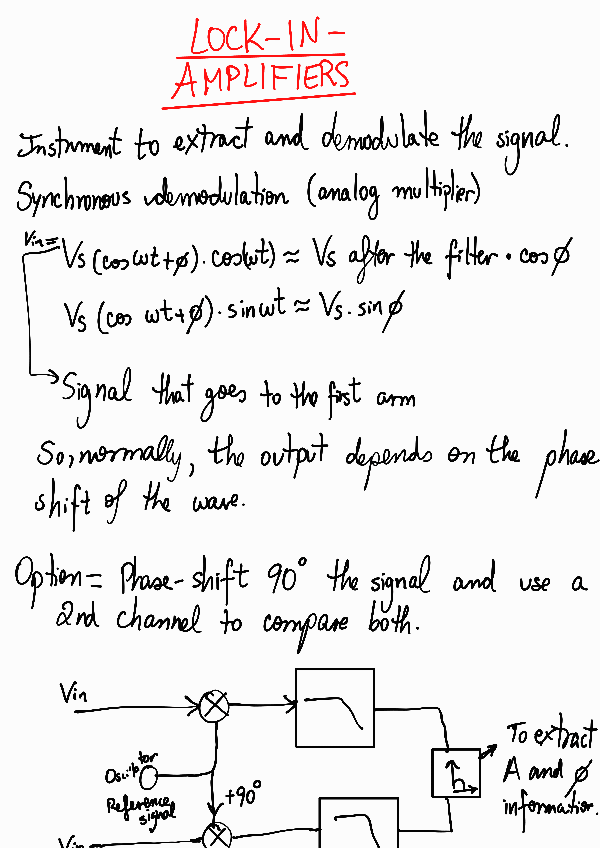 LOCK-IN-
AMPLIFIERS
Instrument to extract and demodulate the signal.
Synchronous demodulation (analog multiplier)
Vin =
Vs (cos ωt + ϕ) · cos(ωt) ≈ Vs after the filter · cos ϕ
Vs (cos ωt + ϕ) · sin ωt ≈ Vs · sin ϕ
Signal that goes to the first arm
So, normally, the output depends on the phase
shift of the wave.
Option = Phase-shift 90° the signal and use a
2nd channel to compare both.
Vin
To extract
A and ϕ
information.
Oscilator
Reference
signal
+90°
Vin